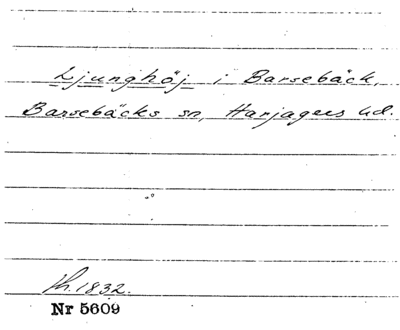 Ljunghöj i Barsebäck,
Barsebäcks sn, Harjagers hd.
th. 1832.
Nr 5609